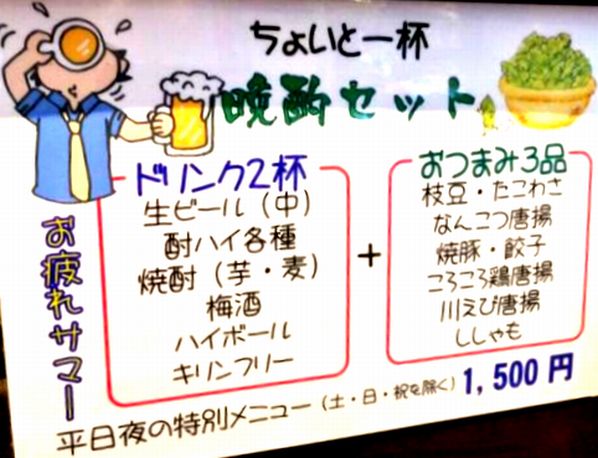 ちょいと一杯
晩酌セット
お疲れサマー
ドリンク2杯
生ビール（中）
酎ハイ各種
焼酎（芋・麦）
梅酒
ハイボール
キリンフリー
+
おつまみ3品
枝豆・たこわさ
なんこつ唐揚
焼豚・餃子
ころころ鶏唐揚
川えび唐揚
ししゃも
平日夜の特別メニュー（土・日・祝を除く）1,500円